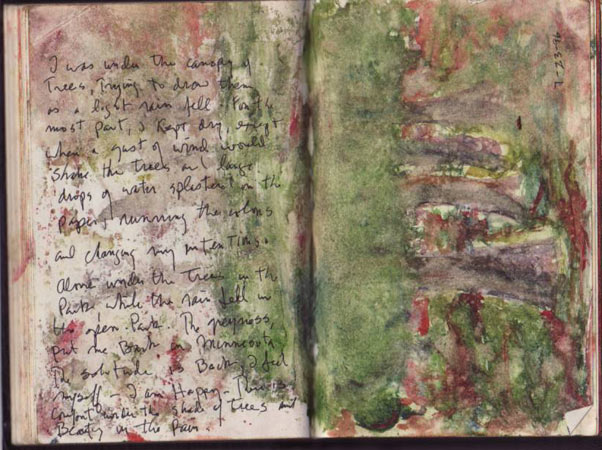 I was under the canopy of
Trees, Trying To draw them
as a light rain fell. For the
most part, I kept dry, except
when a gust of wind would
shake the trees and large
drops of water splashed on the
paper, running the colors
and changing my intentions.
Alone under the Trees in the
Park while the rain fell in
the open Park. The greyness,
put me Back in Minnesota
The solitude is Back, I feel
myself - I am Happy. There is
Comfort under the shade of trees and
Beauty in the Rain.